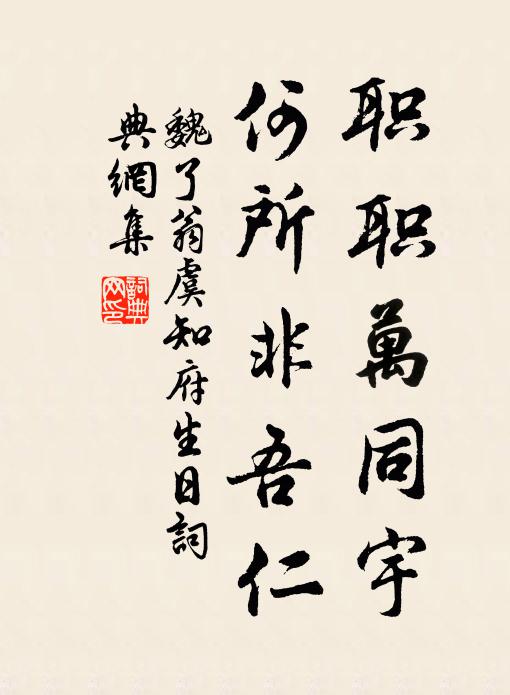 职职萬同宇
何所非吾仁
魏了翁虞知府生日詞
典網集
詞典网印